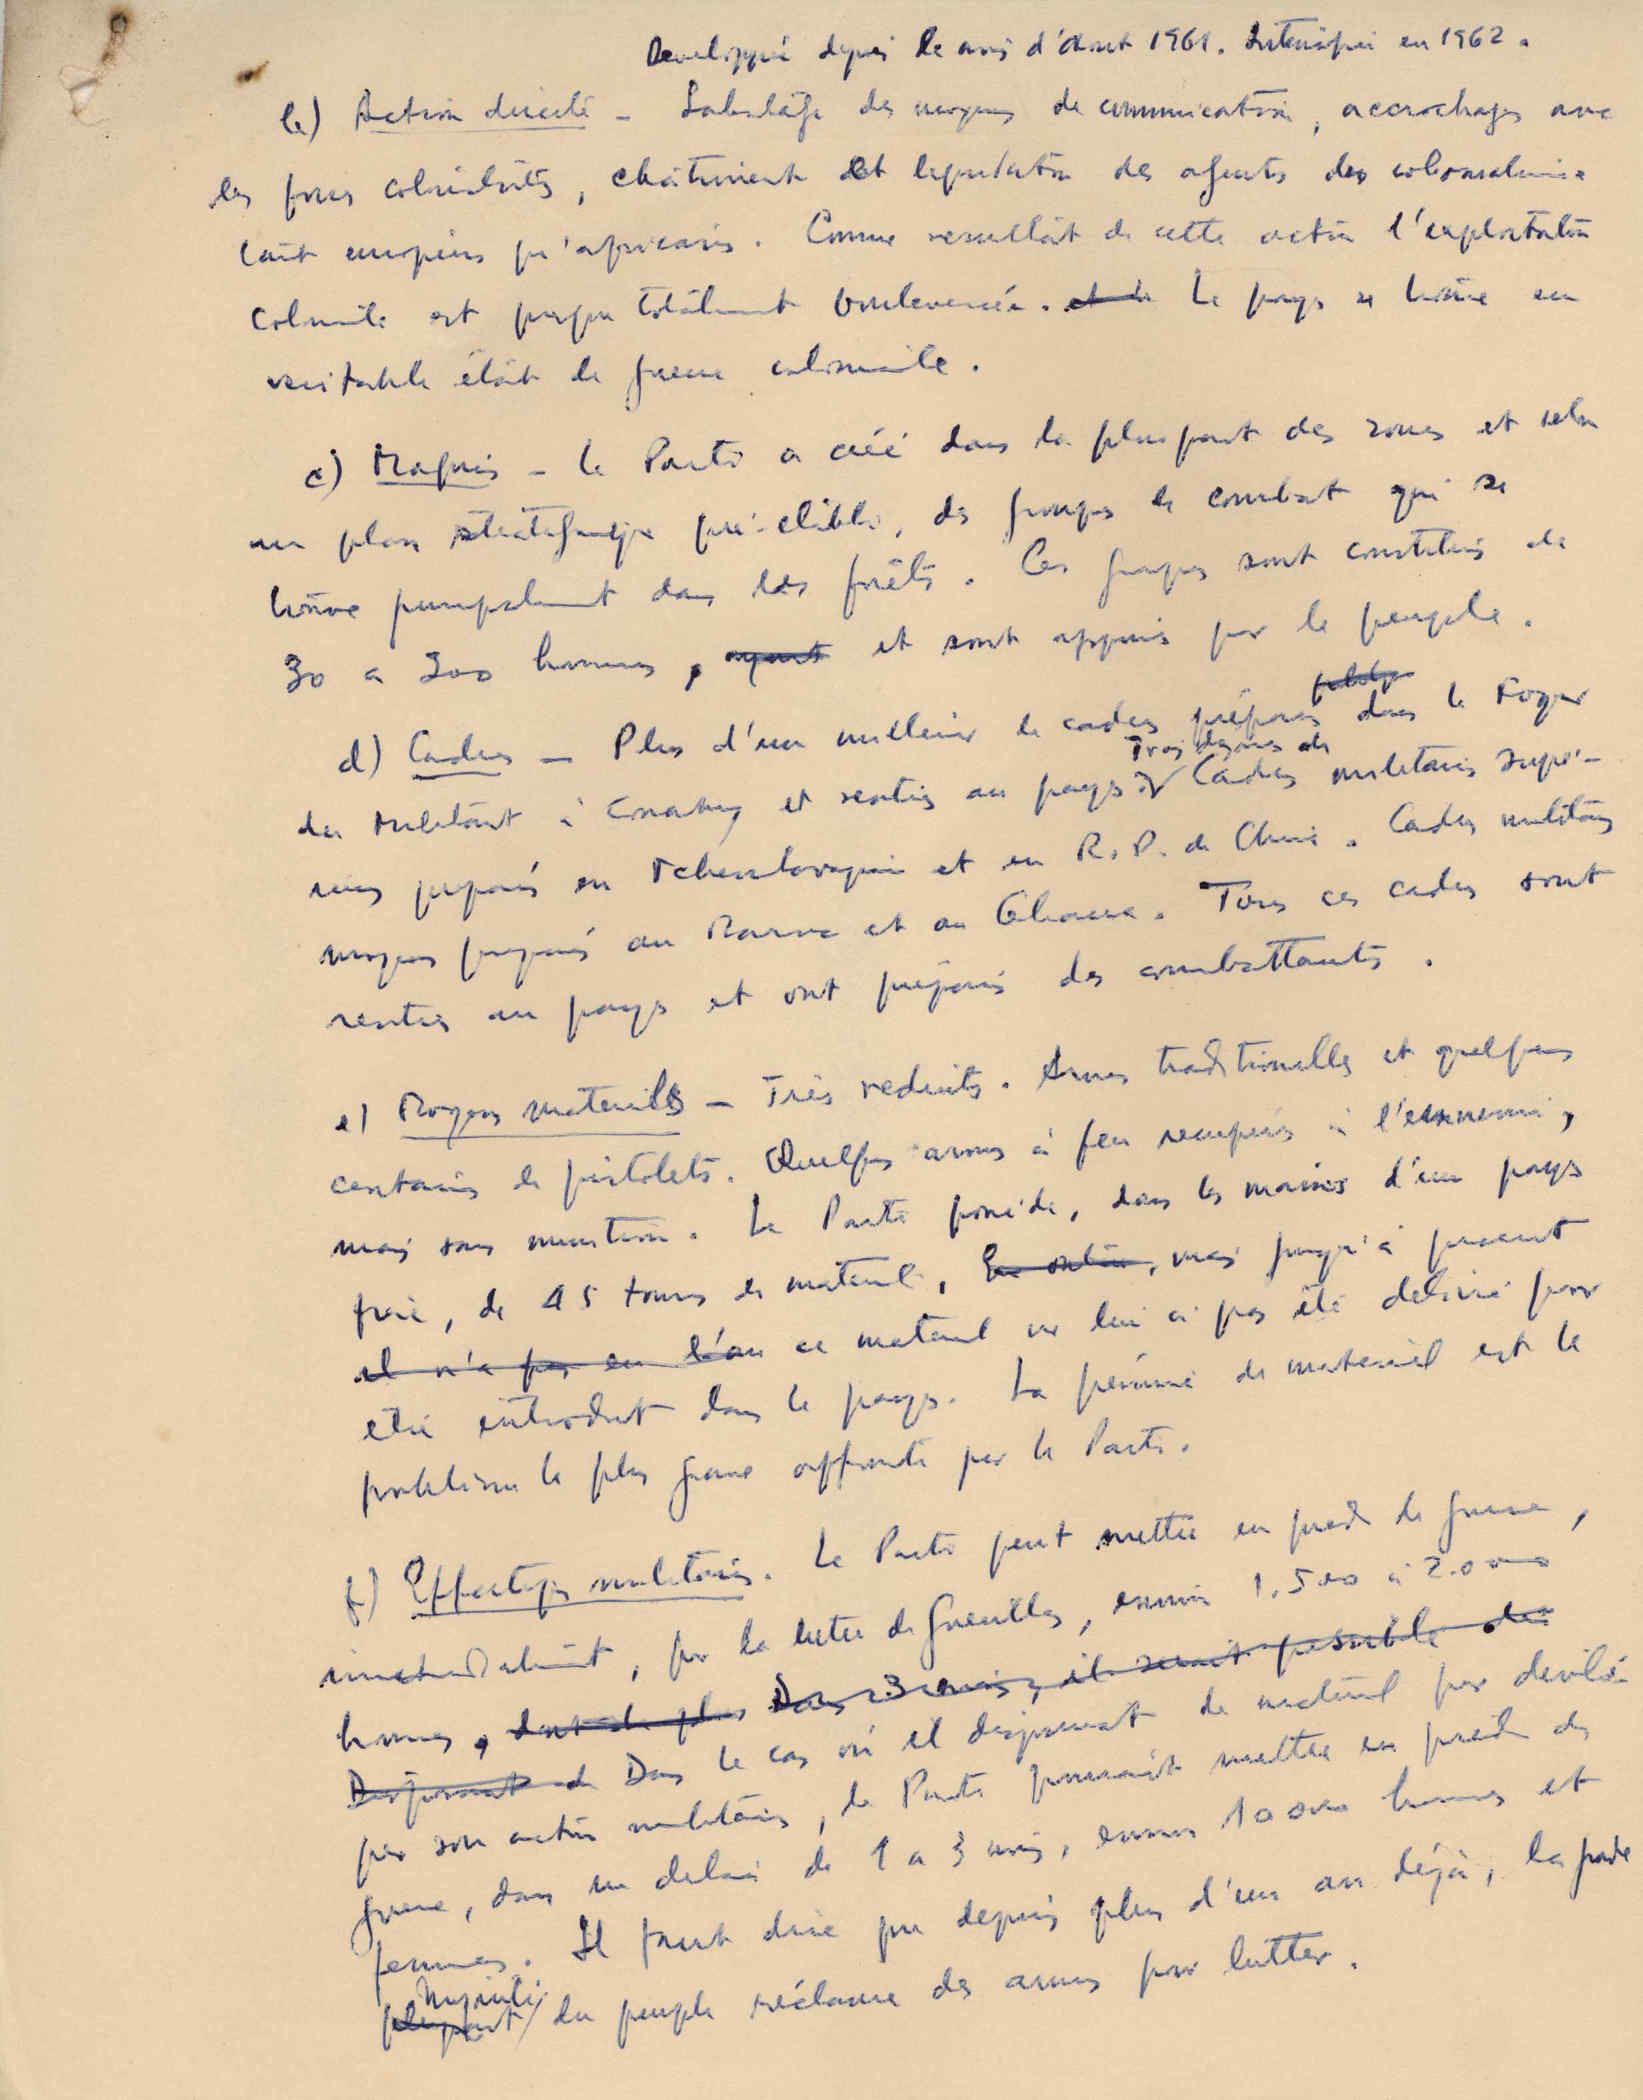 Developpée depuis le mois d'Aout 1961. Intensifiée en 1962.
b) Action directe - Sabotage des moyens de communication, accrochages avec
les forces colonialistes, châtiment et liquidation des agents des colonialistes
tant européens qu'africains. Comme resultat de cette action l'exploitation
coloniale est presque totalment bouleversée. et le Le pays se trouve en
veritable état de guerre coloniale.
c) Maquis - Le Parti a créé dans la plus part des zones et selon
un plan strategique pré-etabli, des groupes de combat qui se
trouve principalement dans les forêts. Ces groupes sont constitués de
30 a 300 hommes, ayant et sont appuiés par le peuple.
d) Cadres - Plus d'un millier de cadres préparés dans le Foyer
Trois dezaines de
du Militant à Conakry et rentrés au pays. Cadres militaires supé-
rieurs preparés en Tchecoslovaquie et en R.P. de Chine. Cadres militaires
moyens preparés au Maroc et au Ghana. Tous ces cadres sont
rentrés au pays et ont préparés des combattants.
e) Moyens materiels - Très reduits. Armes traditionelles et quelques
centaines de pistolets. Quelques armes à feu recuperés à l'ennemi,
mais sans munition. Le Parti possède, dans les mains d'un pays
frère, de 45 tonnes de materiel, En outre, mais jusqu'à present
il n'a pas eu l'au ce materiel ne lui a pas été delivré pour
etre introduit dans le pays. La pénurie de materiel est le
problème le plus grave affronté par le Parti.
f) Effectifs militaires. Le Parti peut mettre en pied de guerre,
immediatement, pour la lutte de guerillas, environ 1.500 à 2.000
hommes, dont de plus Dans 3 mois, il serait possible de
Disposant de Dans le cas où il disposerait de materiel pour develo-
per son action militaire, le Parti pourrait mettre en pied de
guerre, dans un delai de 1 a 3 mois, environ 10 000 hommes et
femmes. Il faut dire que depuis plus d'un an déjà, la grande
majorité
plupart du peuple réclame des armes pour lutter.